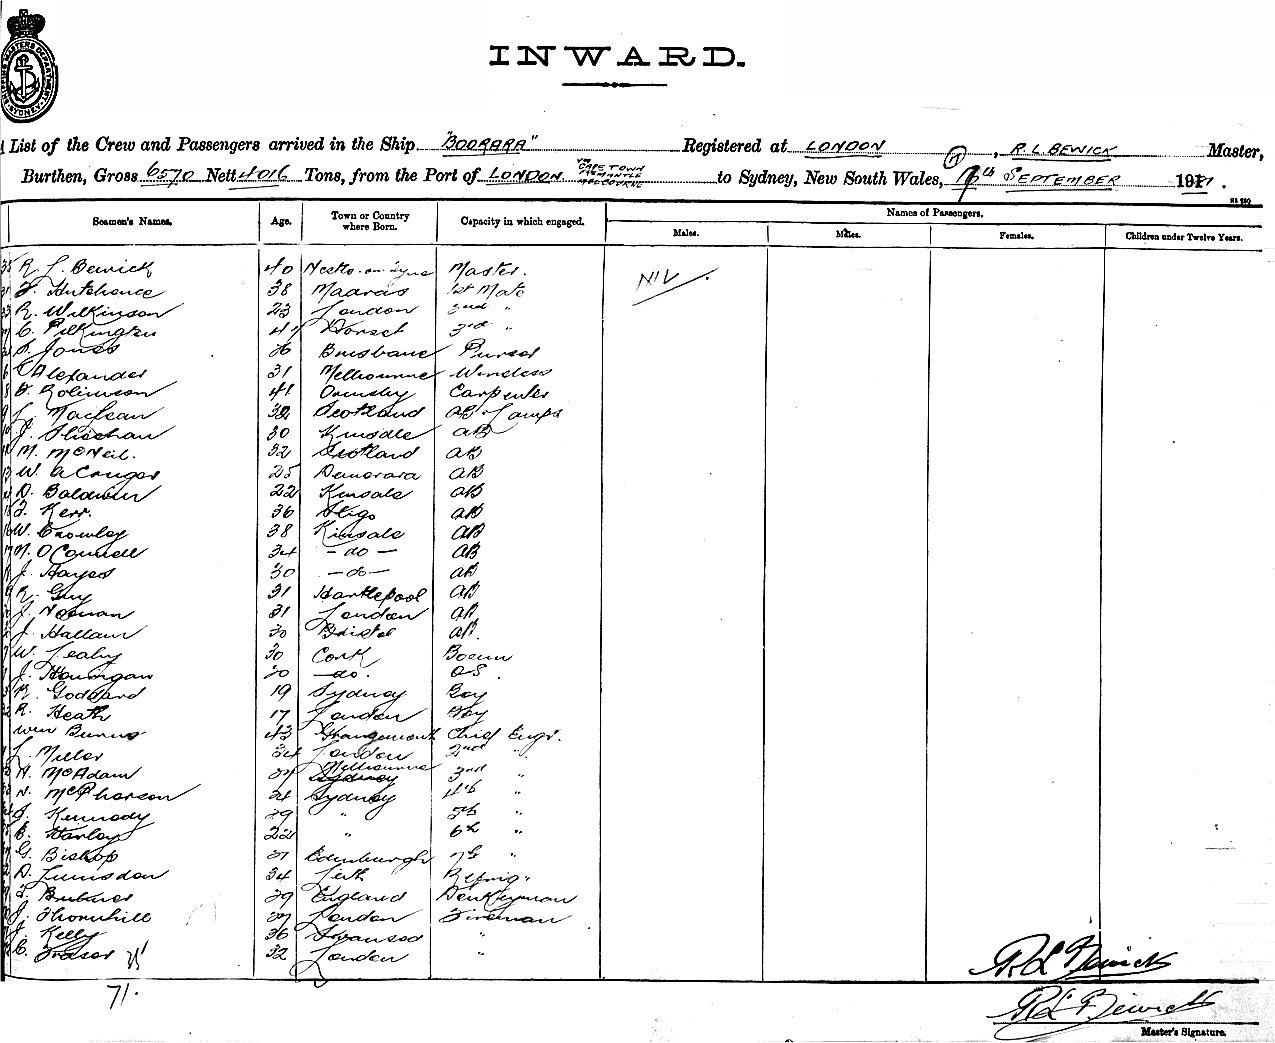 SHIPPING MASTERS DEPARTMENT SYDNEY
INWARD.
List of the Crew and Passengers arrived in the Ship "BOORARA" Registered at LONDON, R. L. BEWICK Master,
Burthen, Gross 6570 Nett 4016 Tons, from the Port of LONDON VIA CAPE TOWN FREMANTLE MELBOURNE to Sydney, New South Wales, 17th SEPTEMBER 191
Seamen's Names. Age. Town or Country where Born. Capacity in which engaged. Names of Passengers.
Males. Females. Children under Twelve Years.
R. L. Bewick 40 Master. NIL
Hutchence 38 Madras 1st Mate
R. Wilkinson 23 London 2nd "
C. Pilkington Dorset 3rd "
Jones 26 Brisbane Purser
Alexander 31 Melbourne Wireless
Robinson 41 Ormsby Carpenter
Maclean 32 Scotland AB Lamps
J. Sheehan 30 Kinsale AB
M. McNeil. 32 Scotland AB
W. 25 Demerara AB
D. Baldwin 22 Kinsale AB
Kerr. 36 Sligo AB
W. Crowley 38 Kinsale AB
M. O'Connell 34 - do - AB
J. Hayes 30 - do - AB
R. Guy 31 Hartlepool AB
J. Noonan 31 London AB
J. Hallam 30 Bristol AB.
W. Leahy 30 Cork Bosun
J. Hannigan 20 - do. OS.
R. Goddard 19 Sydney Boy
R. Heath 17 London Boy
Wm Burns 43 Grangemouth Chief Engr.
Miller 34 London 2nd "
McAdam Melbourne 3rd "
N. McPherson 21 Sydney 4th "
J. Kennedy 29 " 5th "
Hanley 22 " 6th "
G. Bishop Edinburgh 7th "
D. Lumsden 34 Leith Refrig "
29 England Donkeyman
J. Thornhill London Fireman
J. Kelly 36 Swansea "
C. Fraser 32 London "
R L Bewick
71.
R L Bewick
Master's Signature.